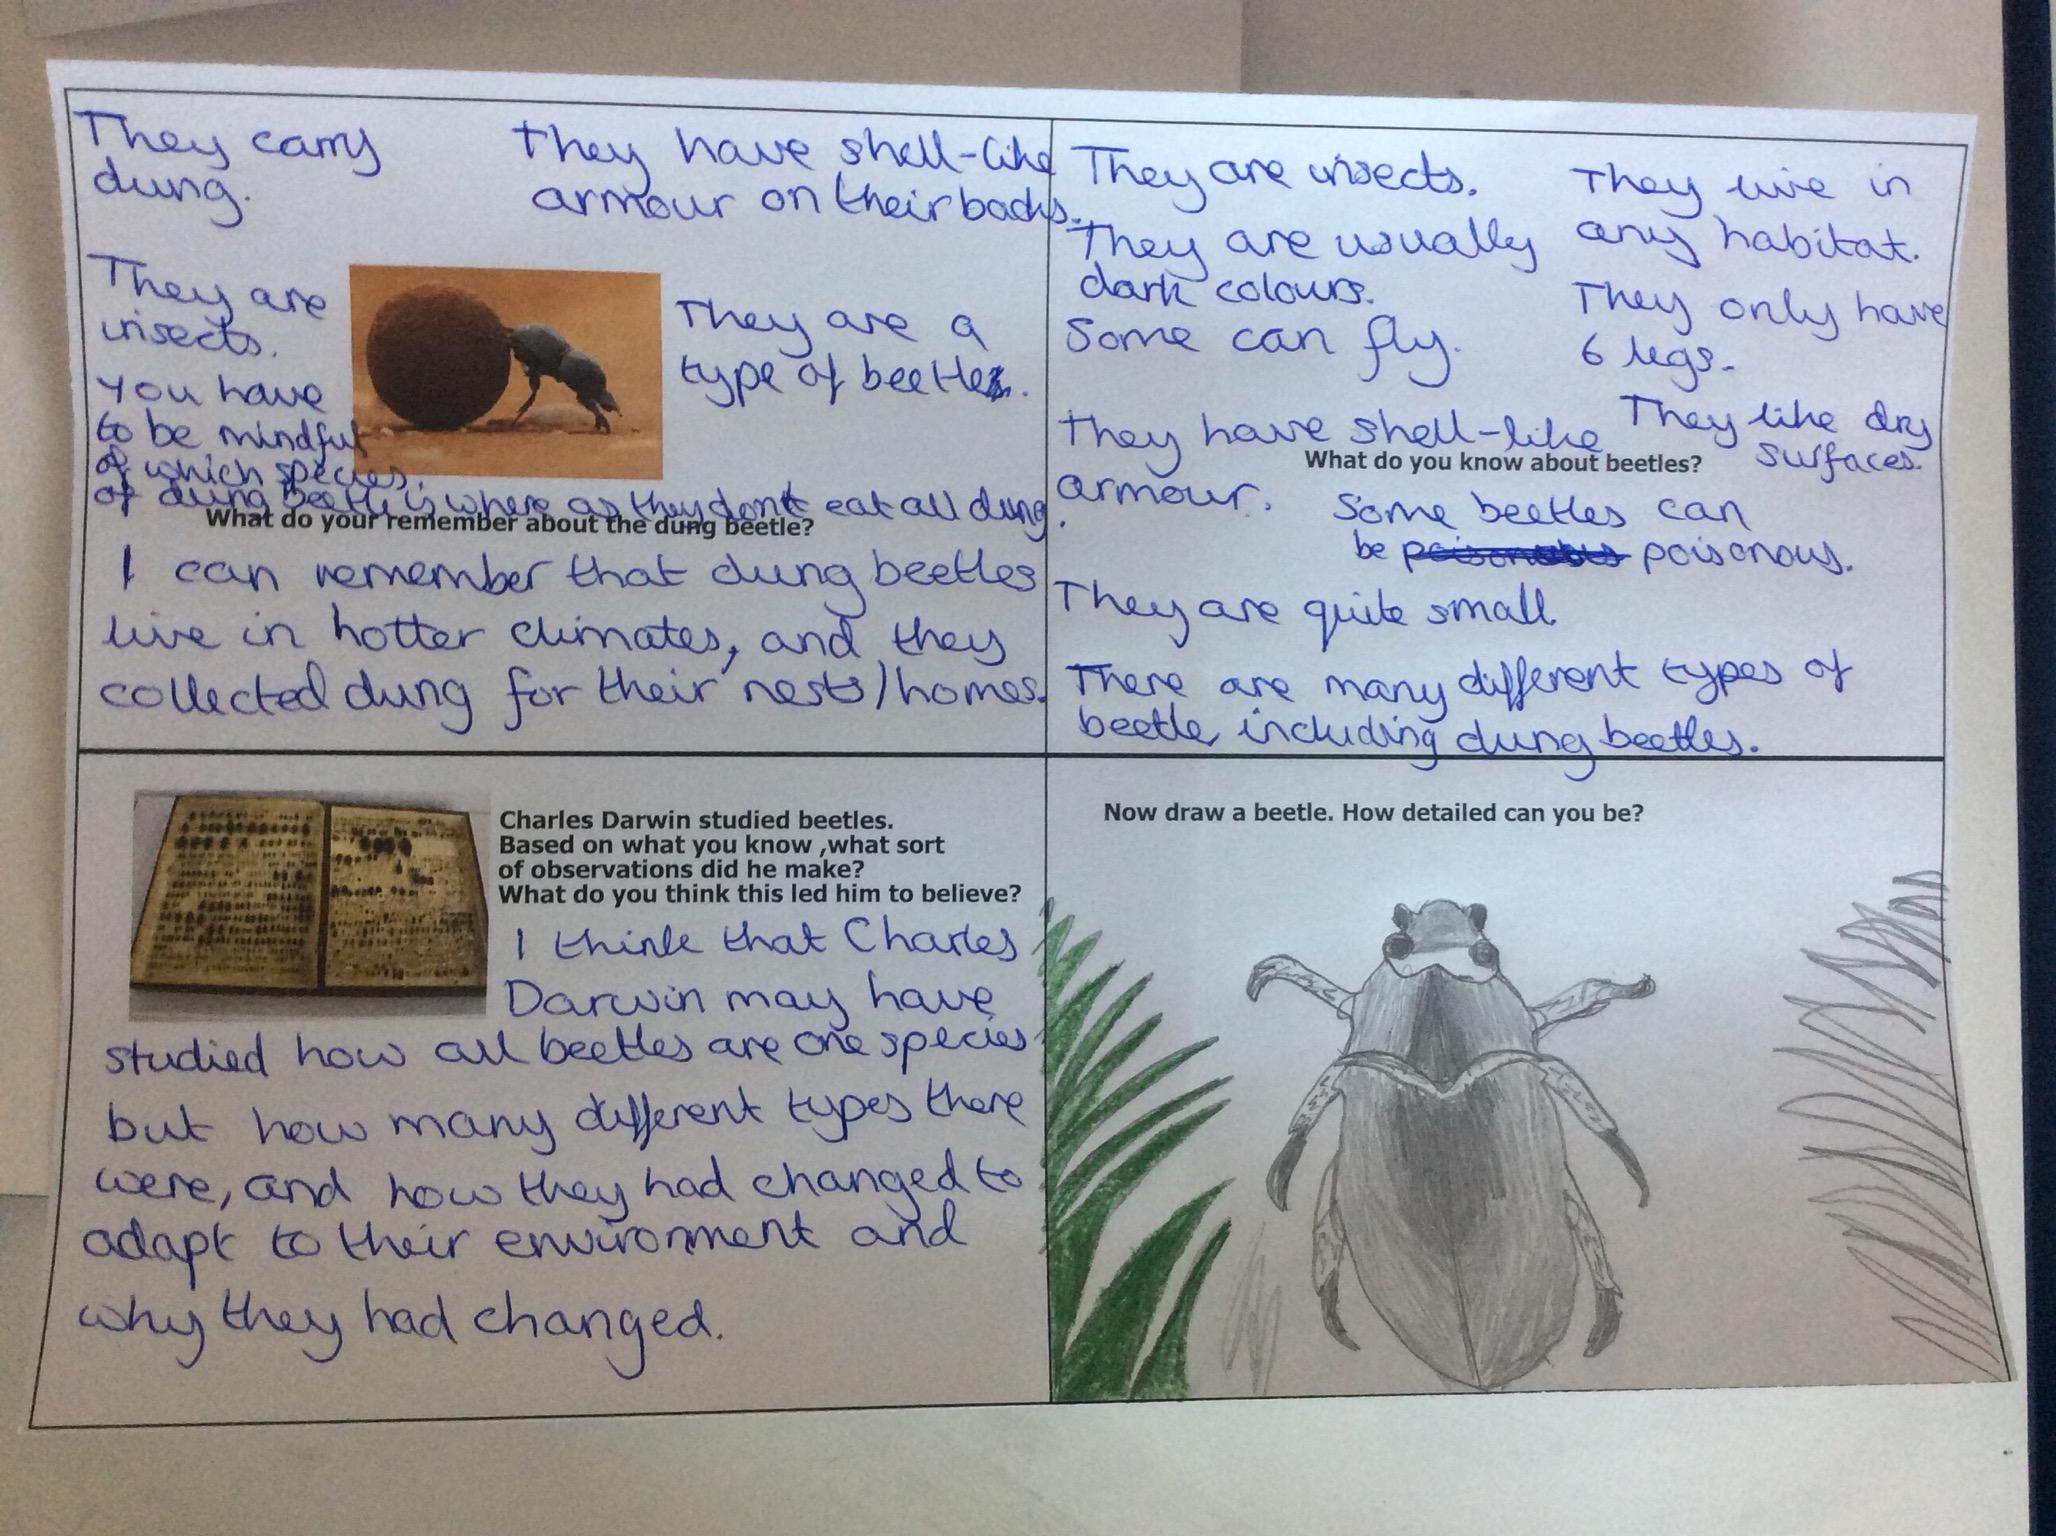 They carry
dung.
They have shell-like
armour on their backs.
They are
insects.
They are a
type of beetle.
You have
to be mindful
of which species
of dung beetle is where as they don't eat all dung.
What do your remember about the dung beetle?
I can remember that dung beetles
live in hotter climates, and they
collected dung for their nests/homes.
They are insects.
They are usually
dark colours.
Some can fly.
They live in
any habitat.
They only have
6 legs.
They have shell-like
armour.
They like dry
surfaces.
What do you know about beetles?
Some beetles can
be poisonous.
They are quite small.
There are many different types of
beetle, including dung beetles.
Charles Darwin studied beetles.
Based on what you know ,what sort
of observations did he make?
What do you think this led him to believe?
I think that Charles
Darwin may have
studied how all beetles are one species
but how many different types there
were, and how they had changed to
adapt to their environment and
why they had changed.
Now draw a beetle. How detailed can you be?